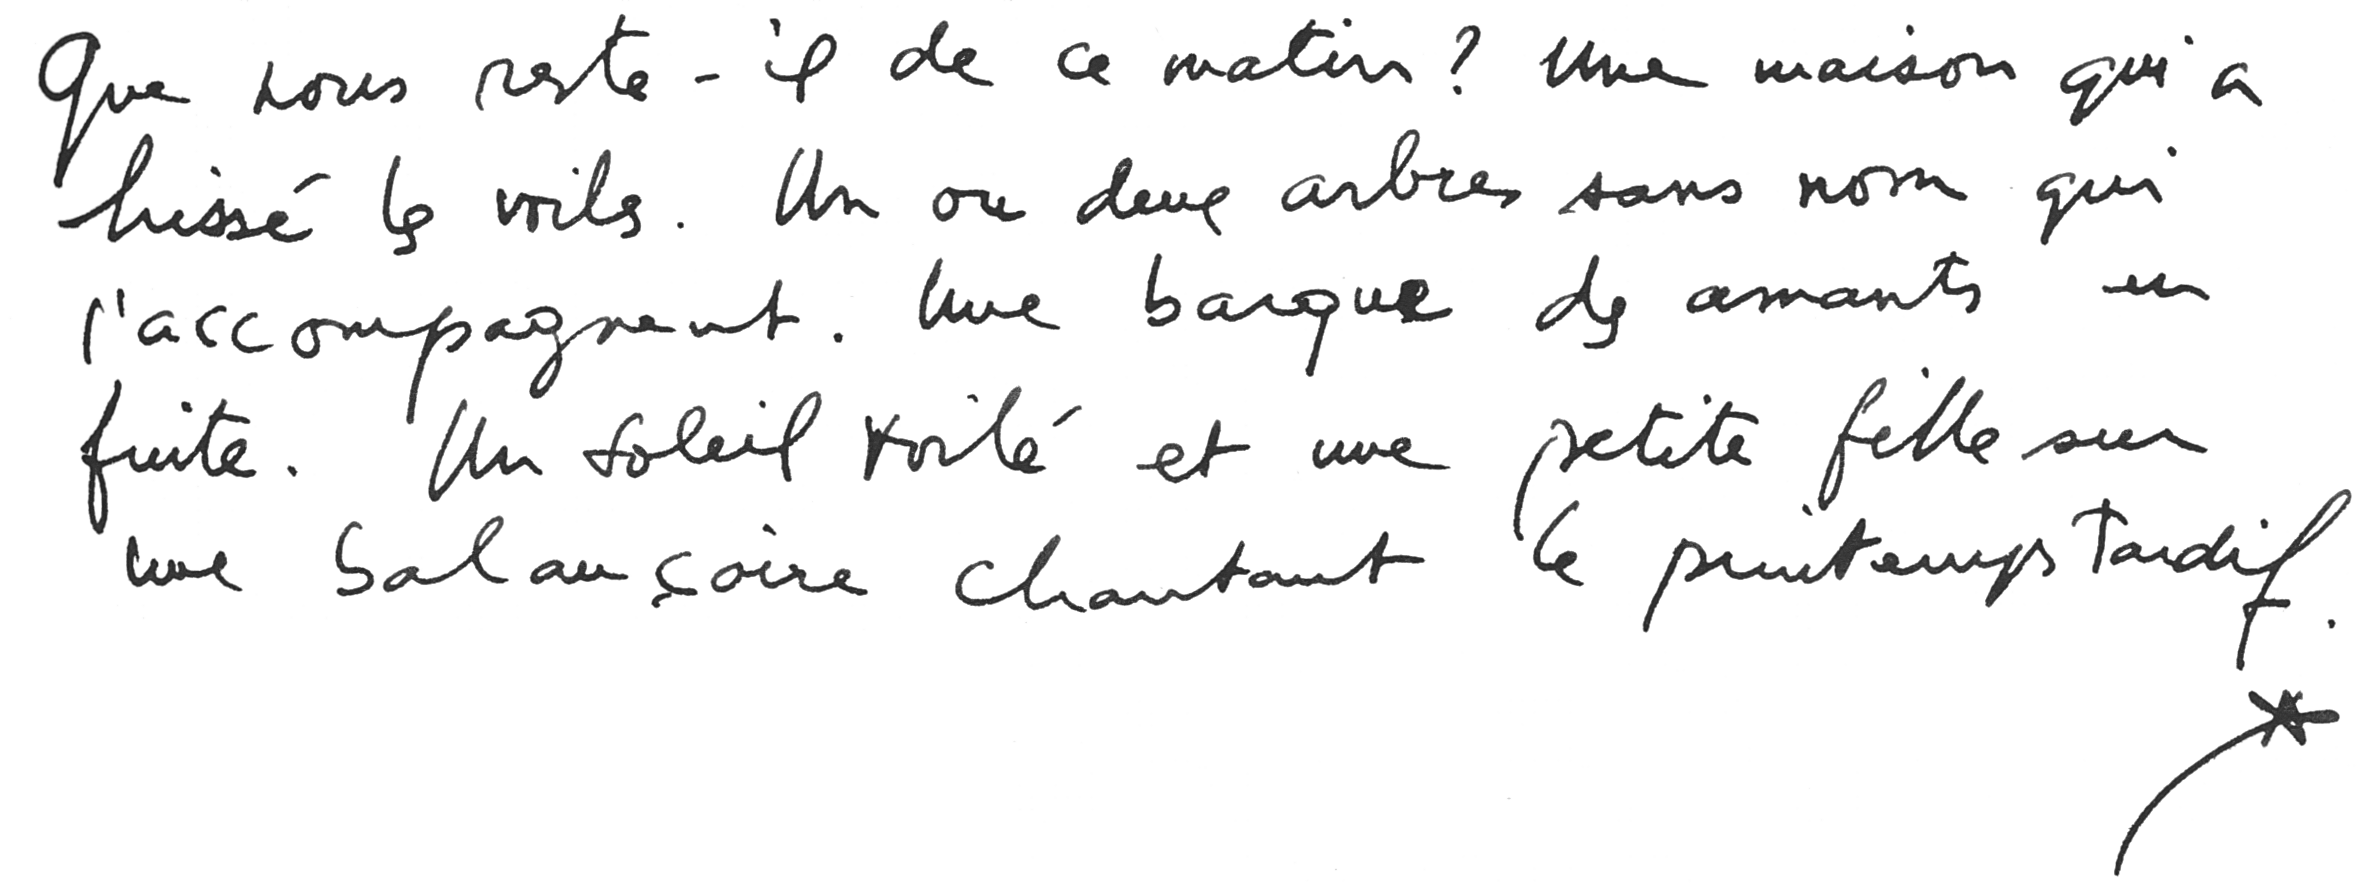 Que nous reste-il de ce matin ? Une maison qui a
hissé les voiles. Un ou deux arbres sans nom qui
l'accompagnent. Une barque des amants en
fuite. Un soleil voilé et une petite fille sur
une balançoire chantant le printemps tardif.